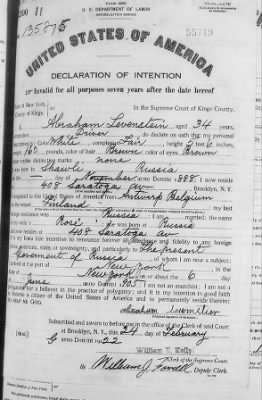 11
135875
U. S. DEPARTMENT OF LABOR
NATURALIZATION SERVICE
55719
UNITED STATES OF AMERICA
DECLARATION OF INTENTION
Invalid for all purposes seven years after the date hereof
of New York,
County of Kings,
In the Supreme Court of Kings County.
Abraham Levenstein, aged 34 years,
Driver do declare on oath that my personal
White, complexion Fair, height 5 feet 6 inches,
pounds, color of hair Brown, color of eyes Brown
visible distinctive marks none
Shawli Russia
day of November, anno Domini 1888; I now reside
408 Saratoga av, Brooklyn, N. Y.
United States of America from Antwerp Belgium
Finland; my last
foreign residence was Russia; I am married; the name
wife is Rose; she was born at Russia
408 Saratoga av
It is my bona fide intention to renounce forever all allegiance and fidelity to any foreign
potentate, state, or sovereignty, and particularly to The present
Government of Russia, of whom I am now a subject;
arrived at the port of New York
New York, on or about the 6 day
June, anno Domini 1905; I am not an anarchist; I am not a
polygamist nor a believer in the practice of polygamy; and it is my intention in good faith
to become a citizen of the United States of America and to permanently reside therein:
SO HELP ME GOD.
Subscribed and sworn to before me in the office of the Clerk of said Court
at Brooklyn, N. Y., this 24 day of February
anno Domini 1922
William E. Kelly
Clerk of the Supreme Court.
By William J. , Deputy Clerk.